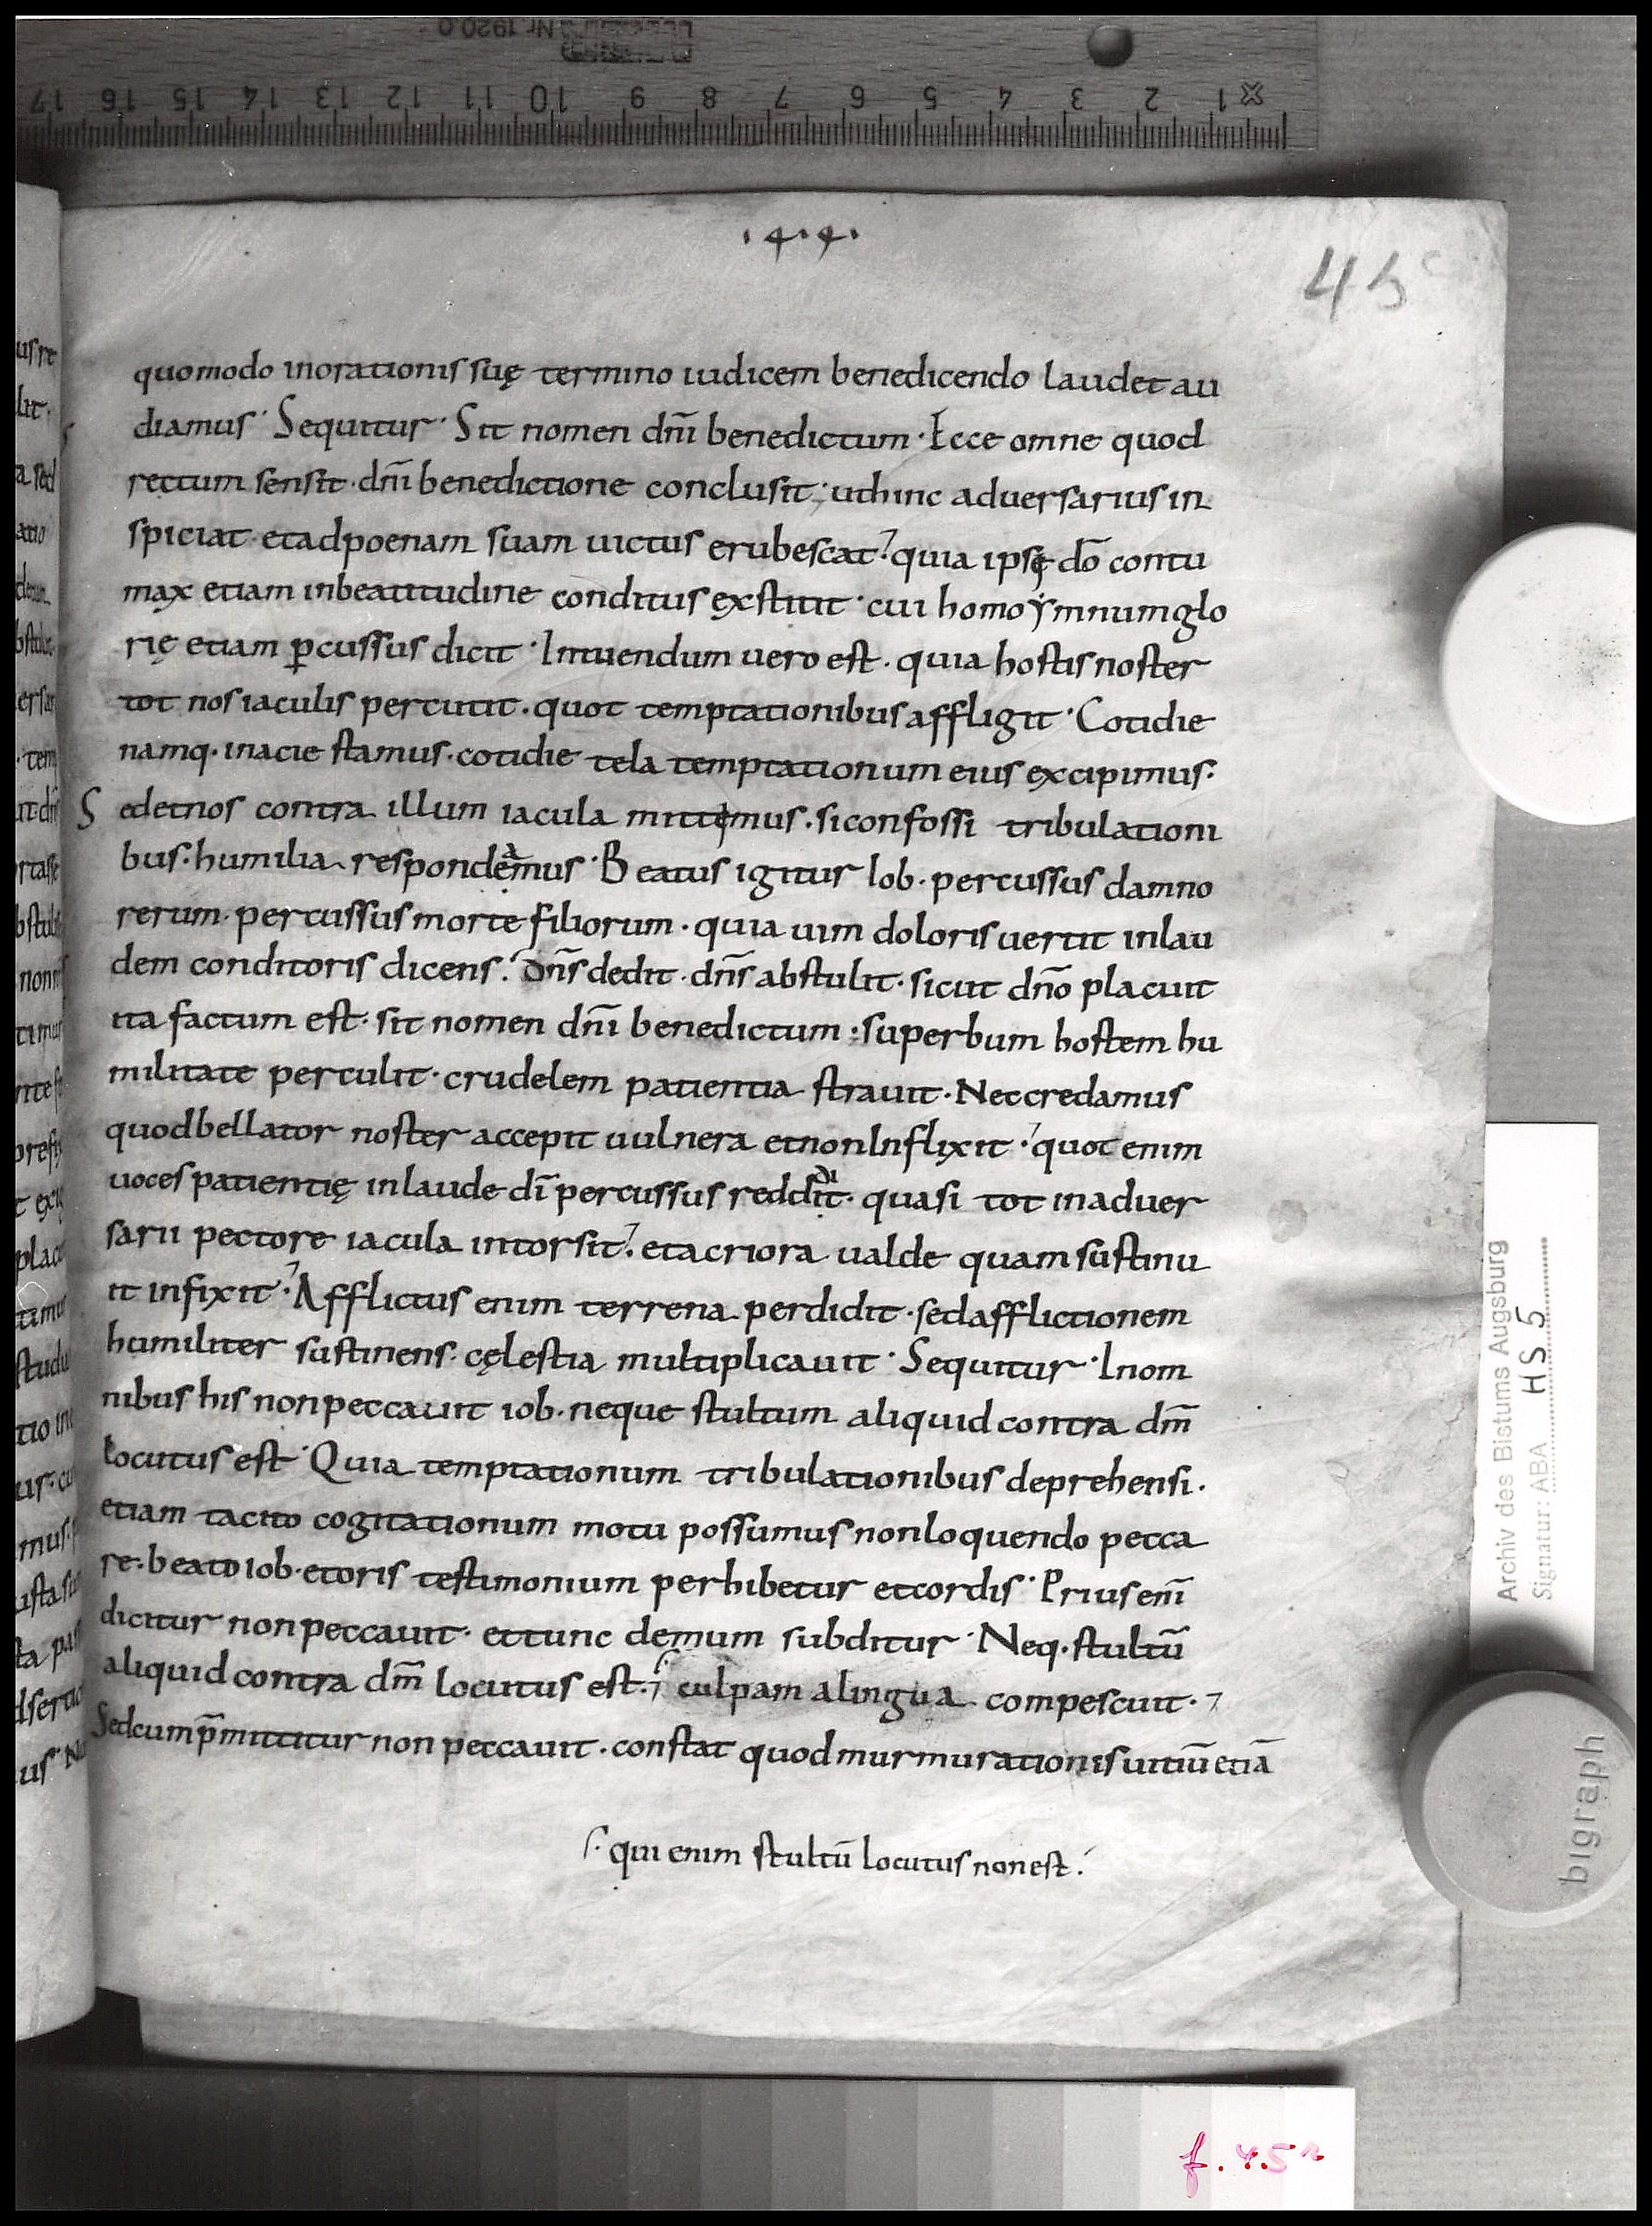 ·4·4·
45
quomodo inorationis suę termino iudicem benedicendo laudet au
diamus· Sequitur· Sit nomen dn̄i benedictum· Ecce omne quod
rectum sensit· dn̄i benedictione conclusit; uthinc aduersarius in
spiciat· etadpoenam suam uictus erubescat? quia ipsę dō contu
max etiam inbeatitudine conditus exstitit· cui homo ẏmnumglo
rię etiam ꝑcussus dicit· Intuendum uero est· quia hostis noster
tot nos iaculis percutit· quot temptationibus affligit· Cotidie
namq· inacie stamus· cotidie tela temptationum eius excipimus·
S edetnos contra illum iacula mittemus· siconfossi tribulationi
bus· humilia respondeamus· Beatus igitur Iob· percussus damno
rerum· percussus morte filiorum· quia uim doloris uertit inlau
dem conditoris dicens· Dn̄s dedit· dn̄s abstulit· sicut dn̄o placuit
ita factum est· sit nomen dn̄i benedictum: superbum hostem hu
militate perculit· crudelem patientia strauit· Nec credamus
quodbellator noster accepit uulnera etnonInflixit· quot enim
uoces patientię inlaude dī percussus reddidit· quasi tot inaduer
sarii pectore iacula intorsit? etacriora ualde quam sustinu
it infixit· Afflictus enim terrena perdidit· sedafflictionem
humiliter sustinens· cęlestia multiplicauit· Sequitur· Inom
nibus his nonpeccauit iob· neque stultum aliquid contra dm̄
locutus est· Quia temptationum tribulationibus deprehensi·
etiam tacito cogitationum motu possumus nonloquendo pecca
re· beato iob· etoris testimonium perhibetur etcordis· Prius eni̅
dicitur nonpeccauit· ettunc demum subditur· Neq· stultū
aliquid contra dm̄ locutus est· culpam alingua compescuit·
Sedcump̄mittitur non peccauit· constat quod murmurationis uitiū etiā
s· qui enim stultū locutus nonest·
Archiv des Bistums Augsburg
Signatur: ABA HS 5
bigraph
f. 45 r
17 16 15 14 13 12 11 10 9 8 7 6 5 4 3 2 1